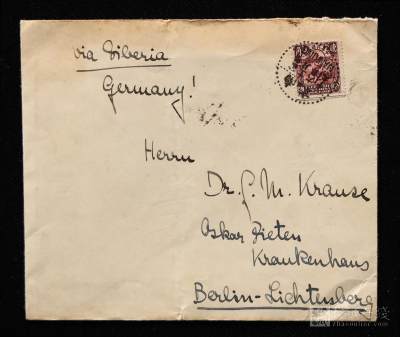 via Siberia
Germany!
Herrn
Dr. F. M. Krause
Oskar Zieten
Krankenhaus
Berlin-Lichtenberg
zhaoonline.com